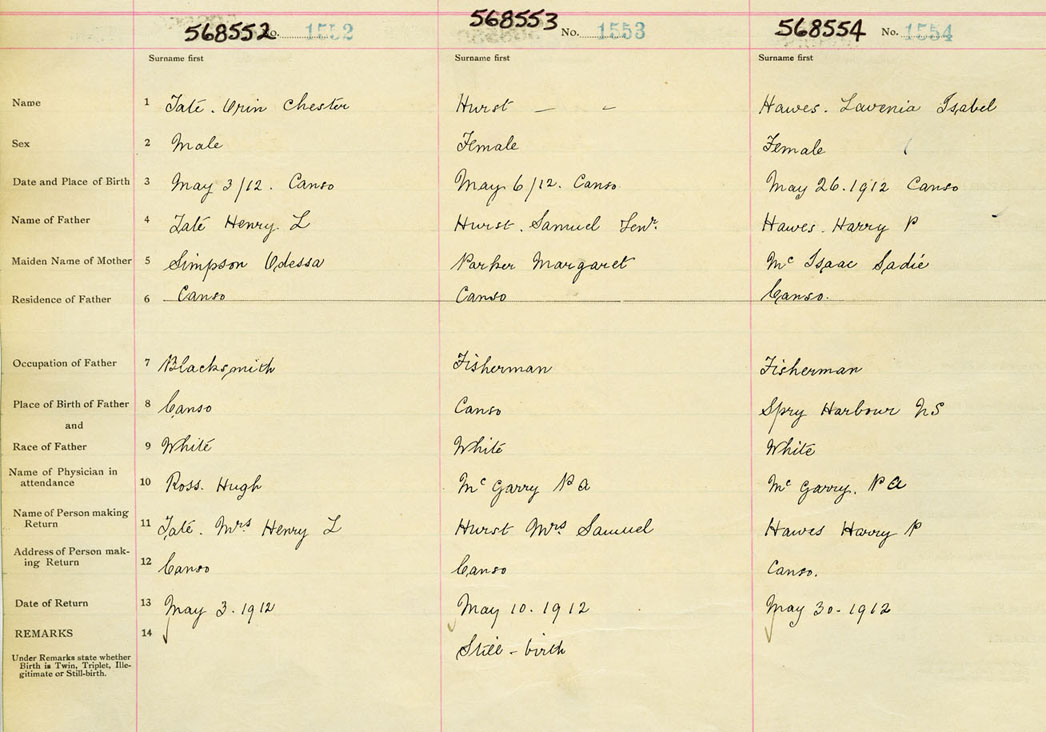 568552 No. 1552 568553 No. 1553 568554 No. 1554
Surname first Surname first Surname first
Name 1 Tate. Orin Chester Hurst — – Hawes. Lavenia Isabel
Sex 2 Male Female Female
Date and Place of Birth 3 May 3/12. Canso May 6/12. Canso. May 26. 1912 Canso
Name of Father 4 Tate Henry. L Hurst. Samuel Senr. Hawes. Harry P
Maiden Name of Mother 5 Simpson Odessa Parker Margaret Mc Isaac Sadie
Residence of Father 6 Canso Canso Canso.
Occupation of Father 7 Blacksmith Fisherman Fisherman
Place of Birth of Father 8 Canso Canso Spry Harbour NS
and
Race of Father 9 White White White
Name of Physician in
attendance 10 Ross. Hugh McGarry P A McGarry. P A
Name of Person making
Return 11 Tate. Mrs Henry L Hurst Mrs Samuel Hawes Harry P
Address of Person mak-
ing Return 12 Canso Canso Canso.
Date of Return 13 May 3. 1912 May 10. 1912 May 30- 1912
REMARKS 14
Still-birth
Under Remarks state whether
Birth is Twin, Triplet, Ille-
gitimate or Still-birth.